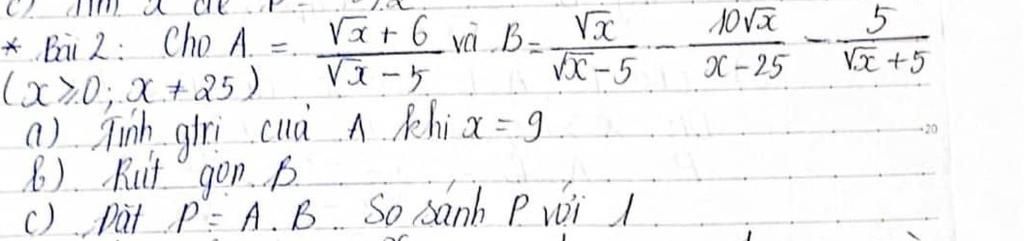 * Bài 2: Cho A = (√x + 6)/(√x - 5) và B = √x/(√x - 5) - 10√x/(x - 25) - 5/(√x + 5)
(x ≥ 0; x ≠ 25)
a) Tính gtri của A khi x = 9
b) Rút gọn B
c) Đặt P = A . B So sánh P với 1